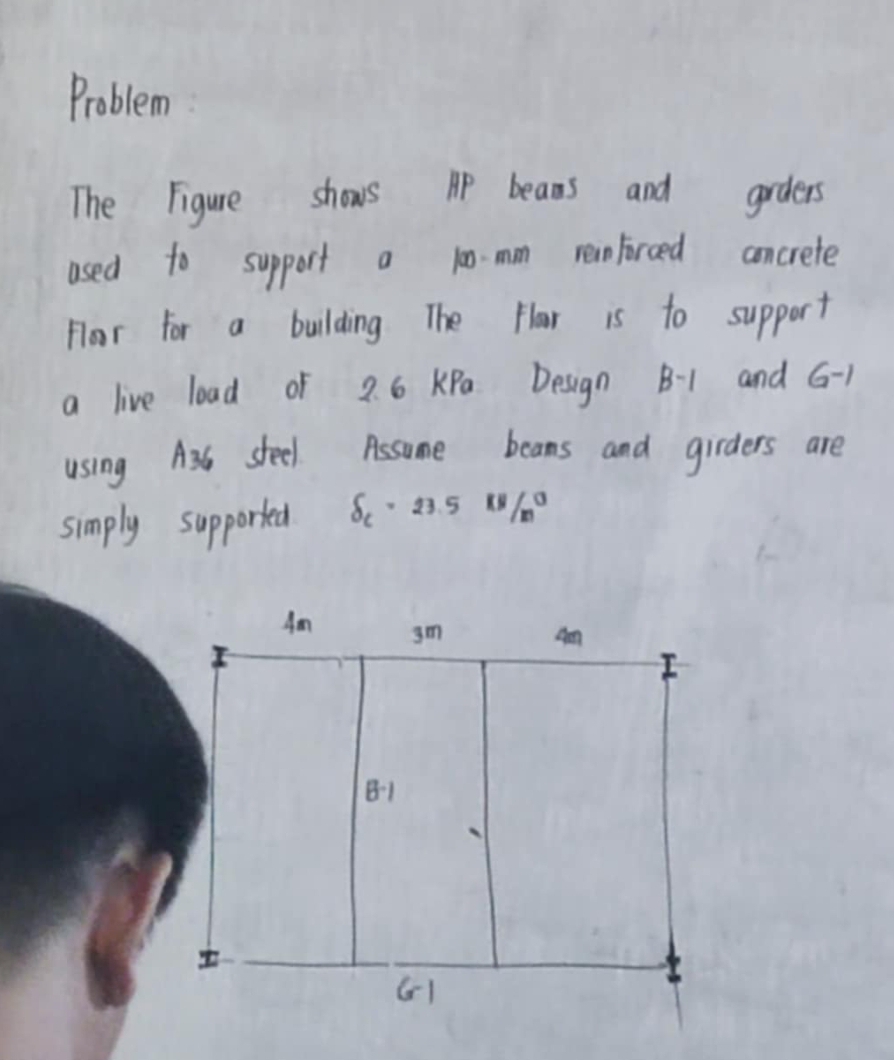 Problem :
The Figure shows HP beams and girders
used to support a 100-mm reinforced concrete
Floor for a building The Floor is to support
a live load of 2.6 KPa. Design B-1 and G-1
using A36 steel. Assume beams and girders are
simply supported. δc = 23.5 KN/m³
4m 3m 4m
B-1
G-1